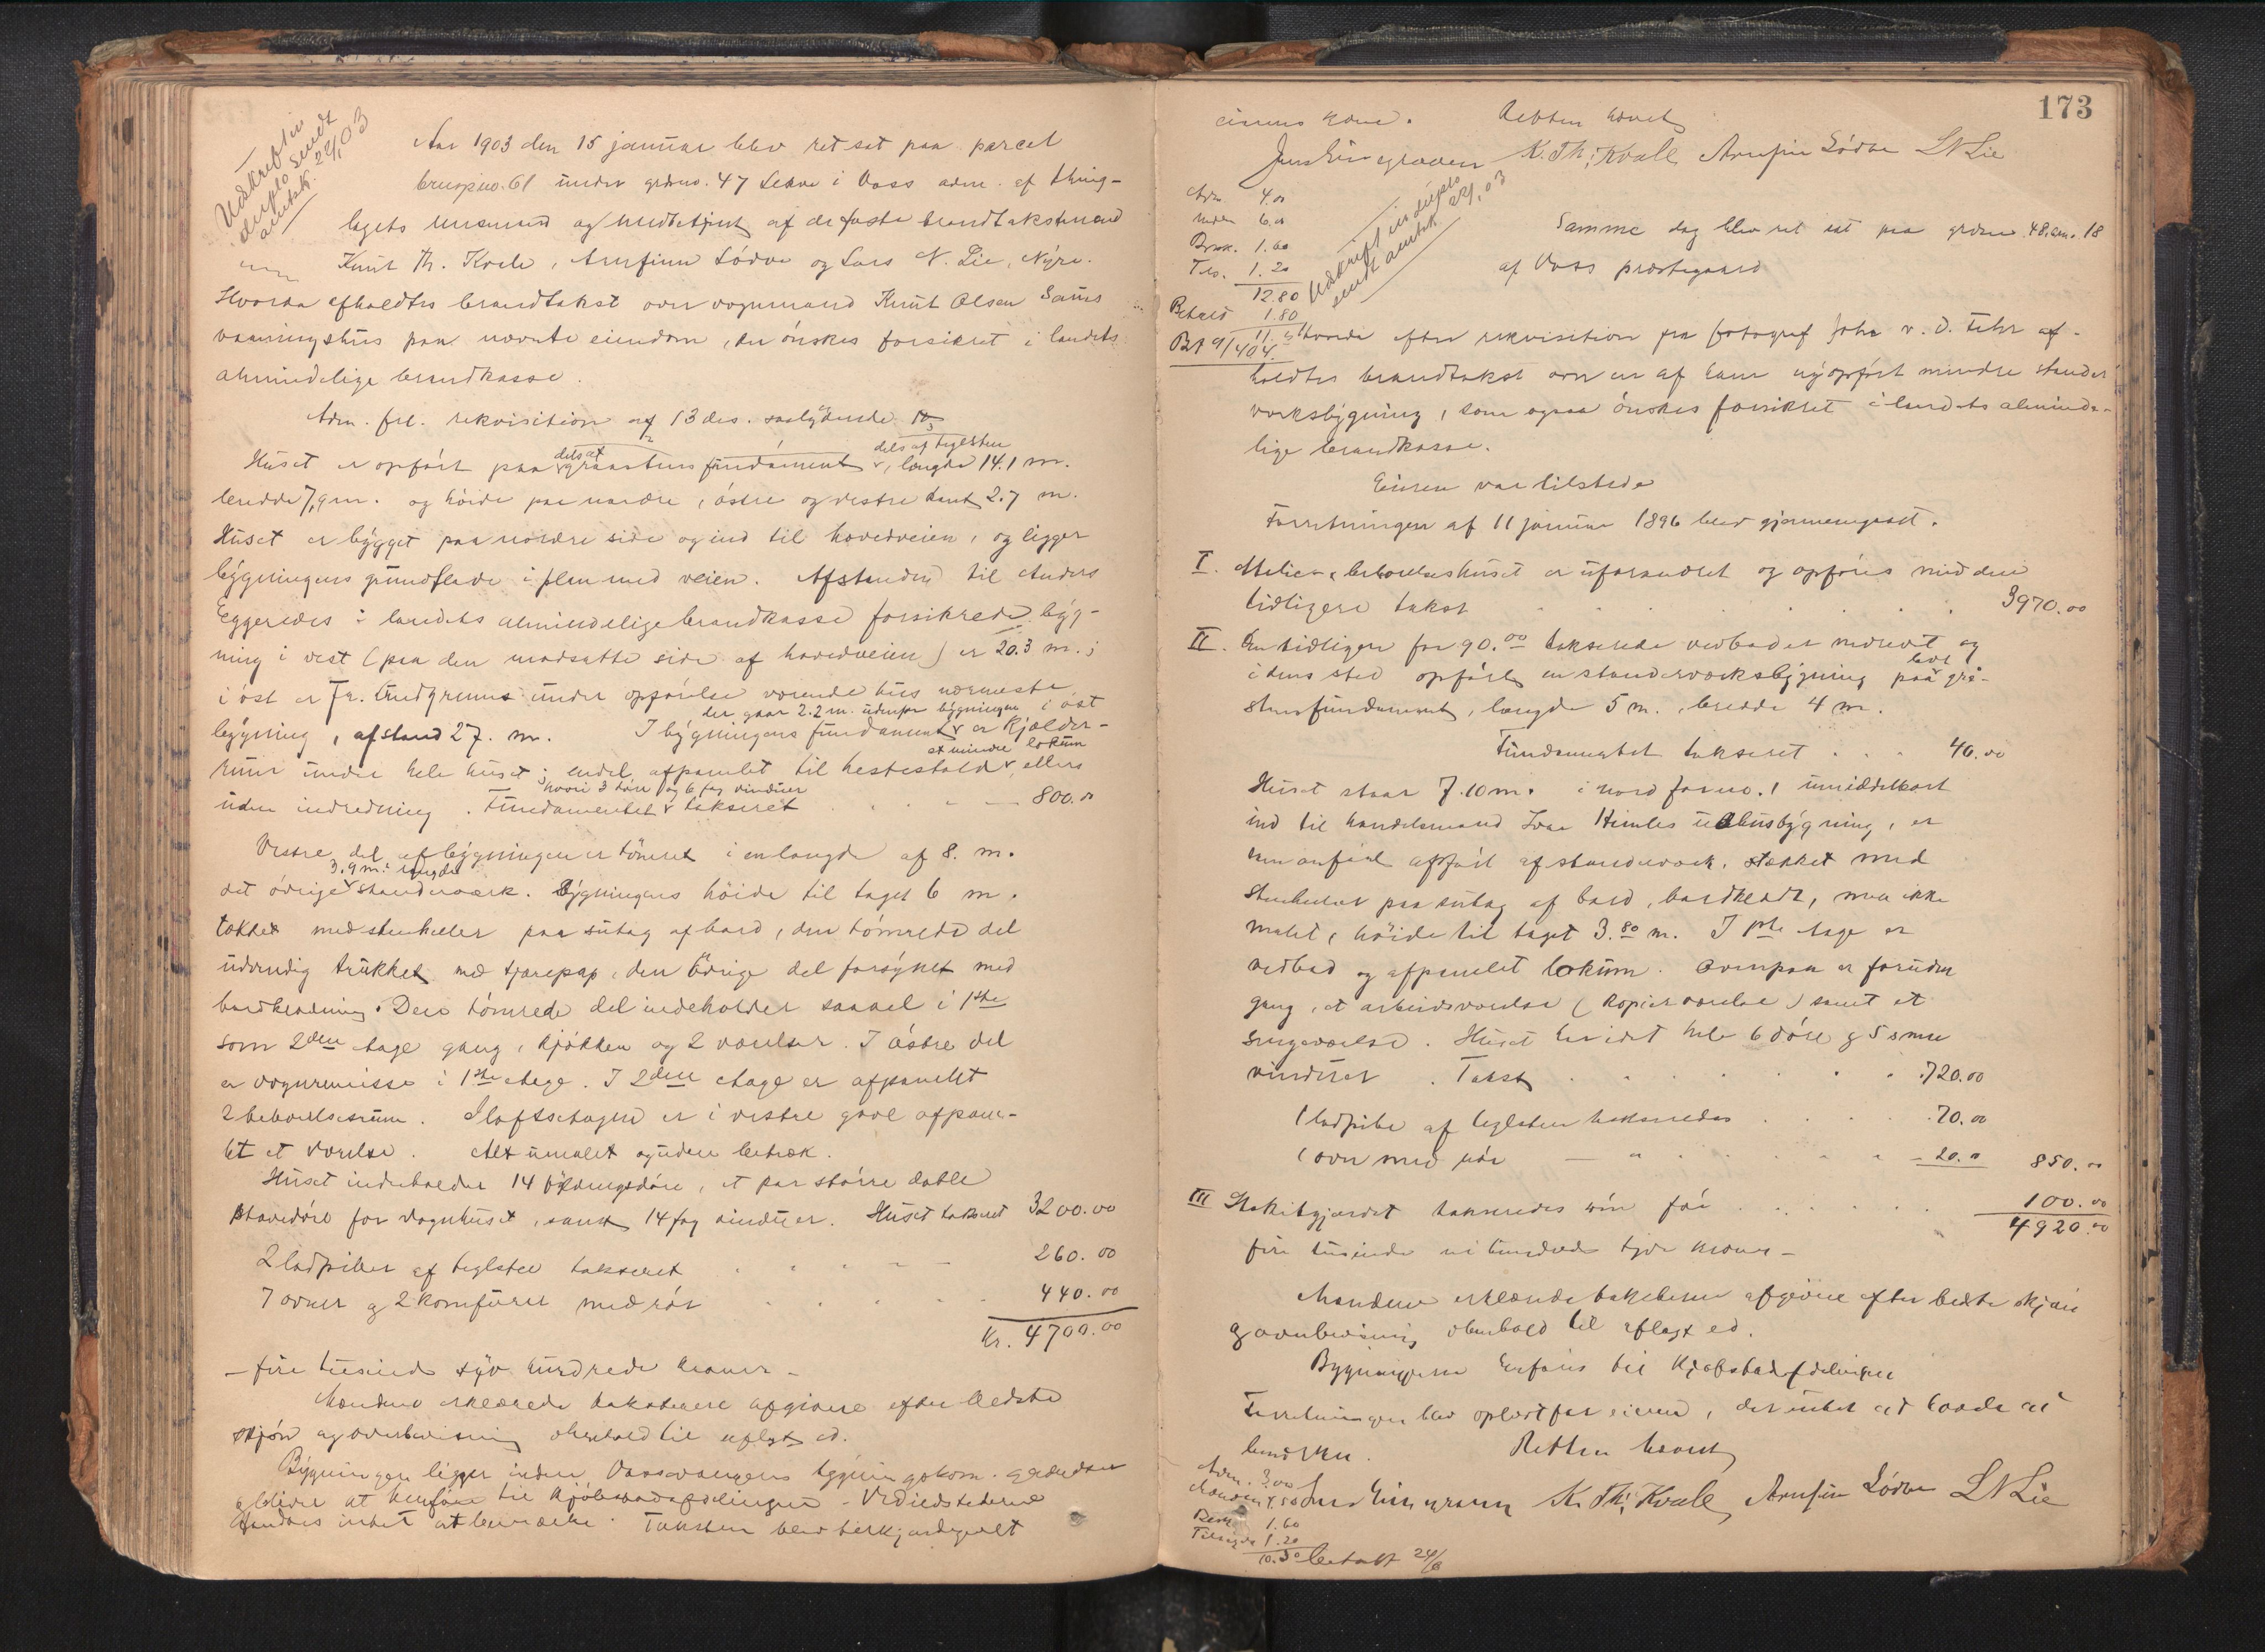 Udskreft in
duplo sendt
amtsk. 24/1 03
Aar 1903 den 15 januar blev ret sat paa parcel
brugsno. 61 under grdsno. 47 Lekve i Voss adm. af thing-
lagets lensmand og medbetjent af de faste brandtakstmænd
Knut Th. Kvale, Arnfinn Lödve og Lars N. Lie, Nyre.
Hvorda afholdtes brandtakst over vognmand Knut Olsen Saues
vaaningshus paa nævnte eiendom, der önskes forsikret i landets
almindelige brandkasse.
Adm. frl. rekvisition af 13 ds. saalydende
dels af dels af teglsten
Huset er opfört paa graastens fundament, længde 14.1 m.
bredde 7,9 m. og höide paa nordre, östre og vestre kant 2.7 m.
Huset er bygget paa nordre side og ind til hovedveien, og ligger
bygningens grundflade i plan med veien. Afstanden til Anders
Eggereides i landets almindelige brandkasse forsikrede byg-
ning i vest (paa den modsatte side af hovedveien) er 20.3 m.;
i öst er Fr. Lindgrens under opförelse værende hus nærmeste
der gaar 2.2 m. udenfor bygningen i öst
bygning, afstand 27. m. I bygningens fundament er kjælder-
et mindre lokum
rum under hele huset; endel afpanlet til hestestald, ellers
hvori 3 döre og 6 fag vinduer
uden indredning. Fundamentet takseret 800.00
Vestre del af bygningen er tömret i en længde af 8. m.
3.9 m. længde
det övrige standerværk. Bygningens höide til taget 6 m.
tækket med stenheller paa sutag af bord, den tömrede del
udvendig trukket med tjærepap, den övrige del forsynet med
bordklædning. Den tömrede del indeholder saavel i 1ste
som 2den etage gang, kjökken og 2 værelser. I östre del
er vognremisse i 1ste etage. I 2den etage er afpanlet
2 beboelsesrum. I loftsetagen er i vestre gavl afpan-
let et værelse. Alt umalet og uden betræk.
Huset indeholder 14 fyldningsdöre, et par större doble
döre for vognhuset, samt 14 fag vinduer. Huset takseret 3200.00
2 ladpiber af teglsten takseret 260.00
7 ovner og 2 komfurer med rör 440.00
Kr. 4700.00
– fire tusinde syv hundrede kroner –
Mændene erklærede taksterne afgivne efter bedste
skjön og overbevisning i henhold til aflagt ed.
Bygningen ligger inden Vossevangens bygningskom. grændser
og bliver at henföre til kjöbstadafdelingen. Ved ildstederne
fandtes intet at bemærke. Taksten blev bekjendtgjort
173
eierens kone. Retten hævet
Jens Einegraven K. Th. Kvale Arnfin Lödve L N Lie
Adm. 4.00
Mænd 6.00
Brsk. 1.60
Tils. 1.20
12.80
Betalt 1.80
11.00
Bet 9/4 04.
Udskrift in duplo
sendt amtsk. 24/1 03
Samme dag blev ret sat paa grdsno. 48, bno. 18
af Voss præstegaard
Hvorda efter rekvisition fra fotograf John v. d. Fehr af-
holdtes brandtakst over en af ham nyopfört mindre stander-
værksbygning, som ogsaa önskes forsikret i landets alminde-
lige brandkasse.
Eieren var tilstede
Forretningen af 11 januar 1896 blev gjennemgaaet.
I. Atelier & beboelseshuset er uforandret og opföres med den
tidligere takst 3970.00
II. En tidligere for 90.00 takseret vedbod er nedrevet og
i dens sted opfört en standerværksbygning paa grå-
stensfundament, længde 5 m., bredde 4 m.
Fundamentet takseret 40.00
Huset staar 7.10 m. i nord for no. 1 umiddelbart
ind til handelsmand Ivar Himles udhusbygning, er
som anfört opfört af standerværk, tækket med
stenheller paa sutag af bord, bordklædt, men ikke
malet, höide til taget 3.80 m. I 1ste etage er
vedbod og afpanlet lokum. Ovenpaa er foruden
gang, et arbeidsværelse (kopierværelse) samt et
sengeværelse. Huset har idet hele 6 döre & 5 smaa
vinduer. Takst 720.00
1 ladpibe af teglsten takseredes 70.00
1 ovn med rör 20.00 850.00
III Stakitgjærdet takseredes som för 100.00
4920.00
fire tusinde ni hundrede tyve kroner –
Mændene erklærede taksterne afgivne efter bedste skjön
og overbevisning i henhold til aflagt ed.
Bygningerne henföres til Kjöbstadafdelingen
Forretningen blev oplæst for eieren, der intet havde at
bemærke. Retten hævet
Jens Einegraven K. Th. Kvale Arnfin Lödve L N Lie
Adm. 3.00
Mænden 4.50
Brsk 1.60
Tilsagn 1.20
10.30 betalt 24/6